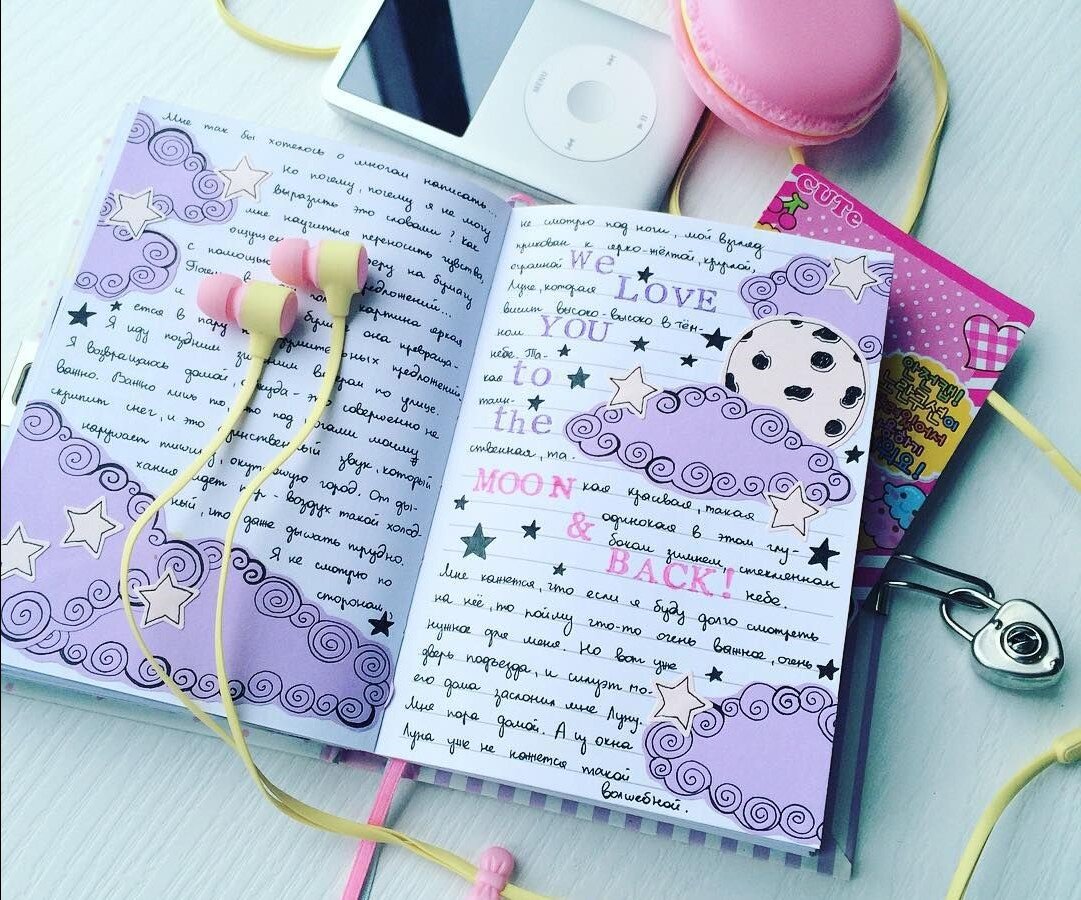 MENU
CUTe
Мне так бы хотелось о многом написать...
Но почему, почему я не могу
выразить это словами? Как
мне научиться переносить чувства,
на бумагу
с помощью предложений...
картина яркая
и она превраща-
ется в пару предложений
Я иду поздним по улице.
Я возвращаюсь домой, - это совершенно не
важно. Важно лишь то, что под ногами моими
скрипит снег, и это единственный звук, который
нарушает тишину, город. От ды-
хания идет пар - воздух такой холод-
ный, что даже дышать трудно.
Я не смотрю по
сторонам,
не смотрю под ноги, мой взгляд
прикован к ярко-жёлтой, круглой,
огромной
we
Луне, которая
LOVE
висит высоко-высоко в тём-
ном
YOU
небе. Та-
кая
to
таин-
the
ственная, та-
MOON
кая красивая, такая
&
одинокая в этом глу-
боком зимнем, стеклянном
BACK!
небе.
Мне кажется, что если я буду долго смотреть
на неё, то пойму что-то очень важное, очень
нужное для меня. Но вот уже
дверь подъезда, и силуэт мо-
его дома заслонил мне Луну.
Мне пора домой. А из окна
Луна уже не кажется такой
волшебной.